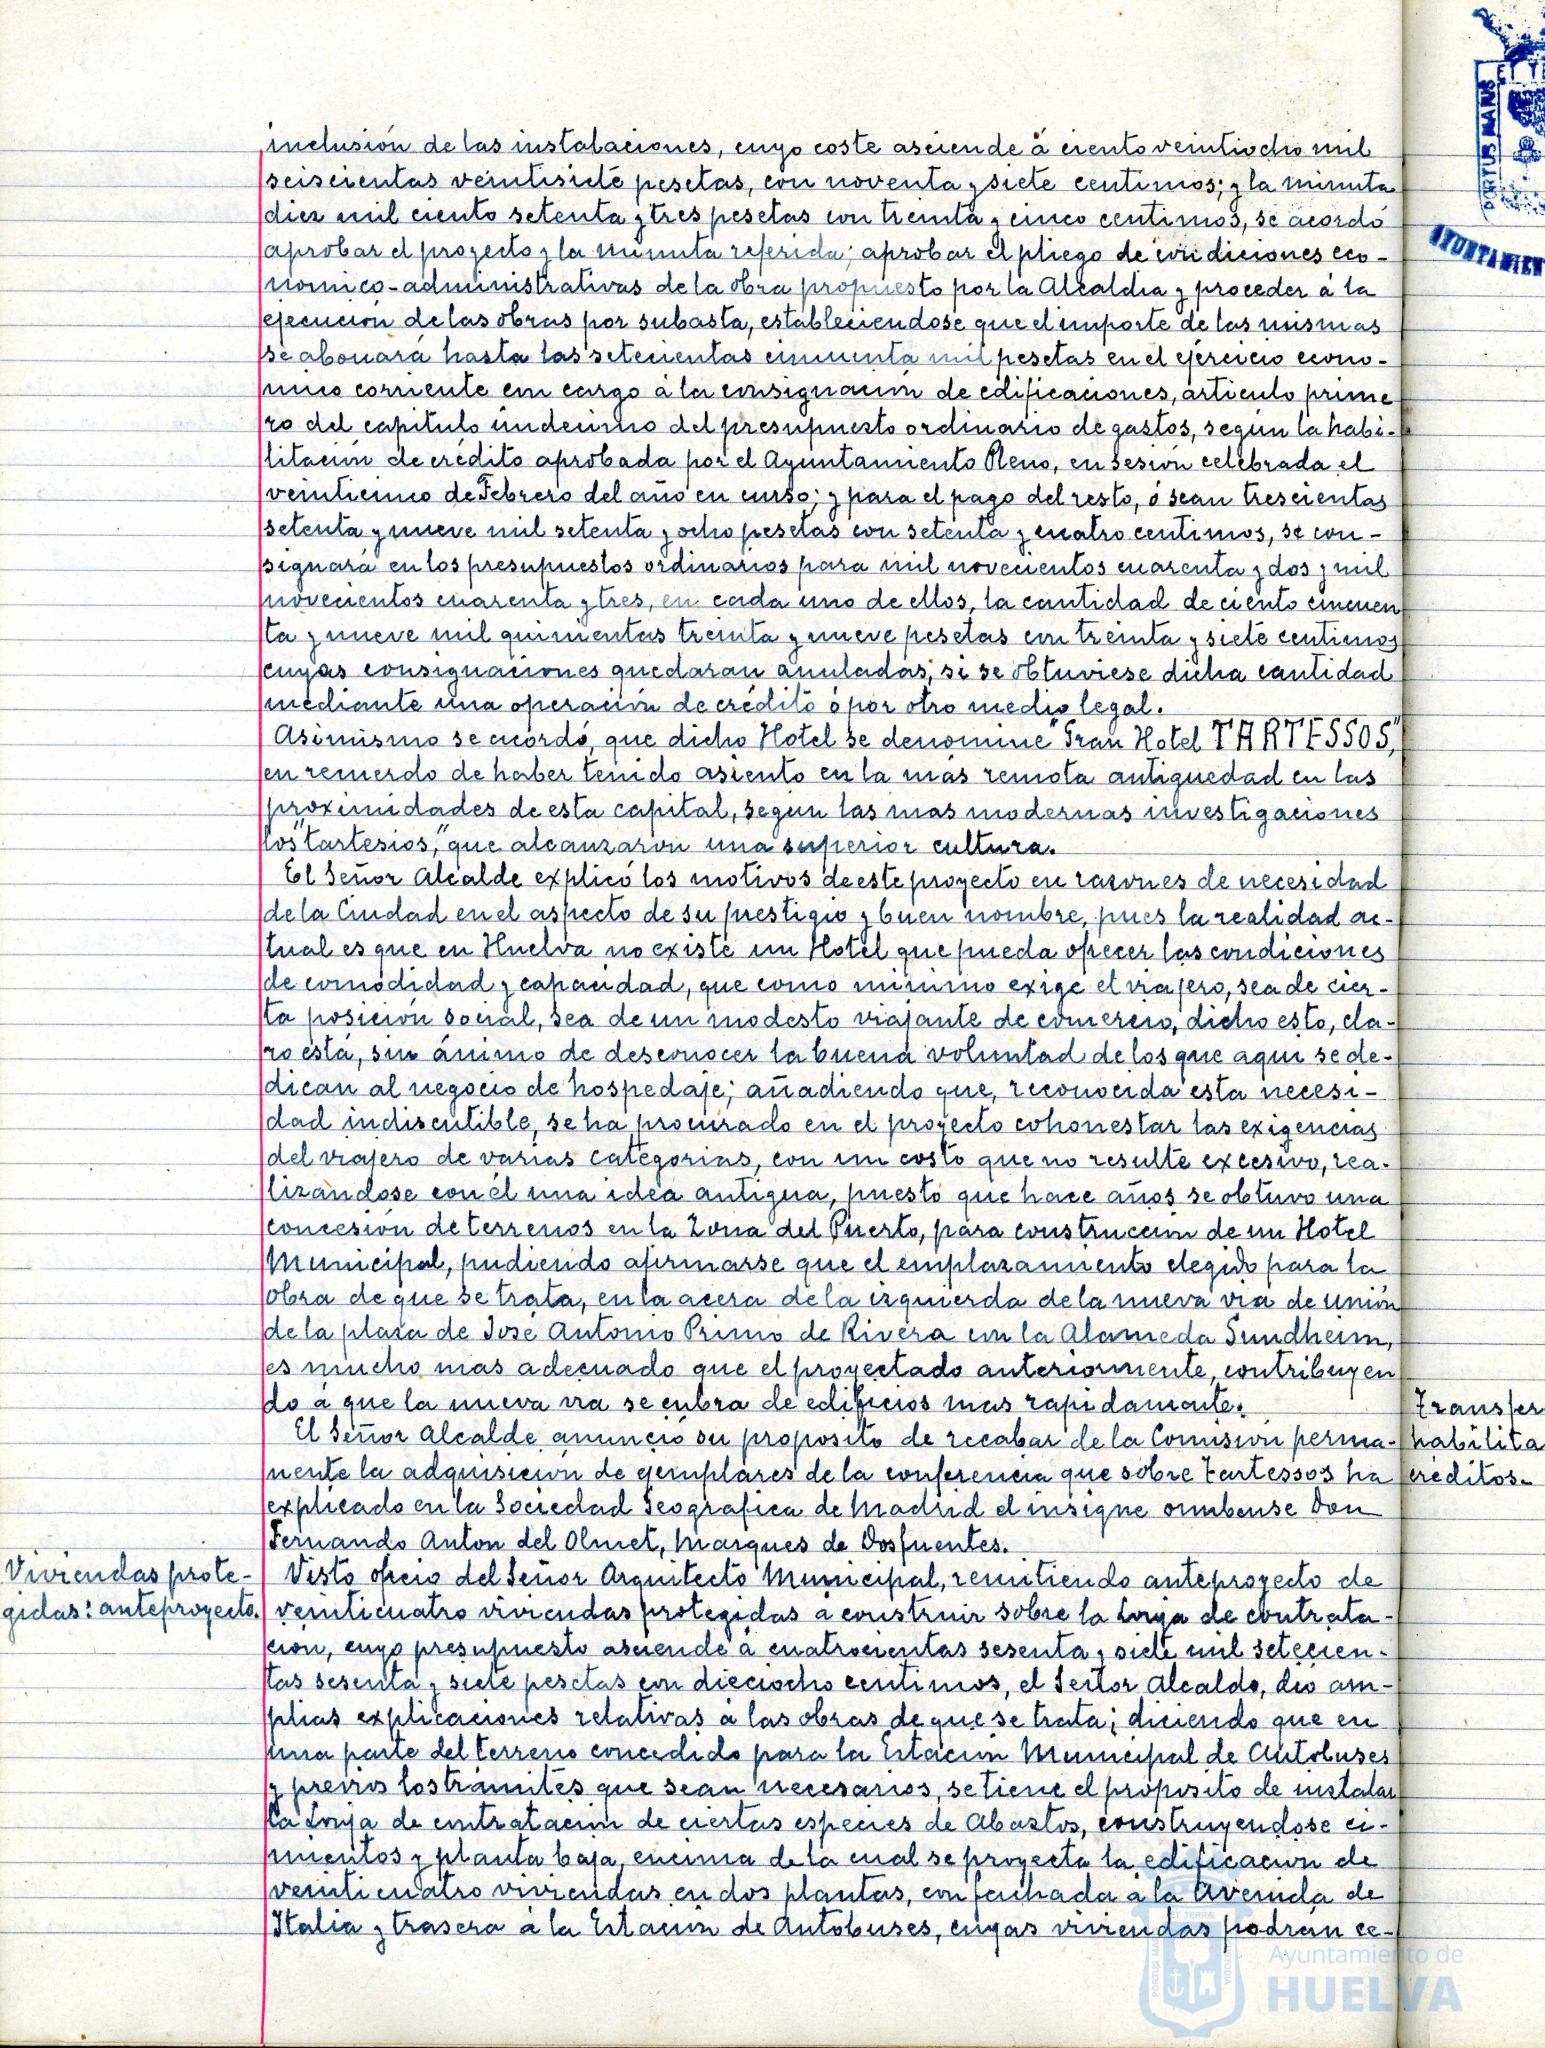 inclusión de las instalaciones, cuyo coste asciende á ciento veintiocho mil
seiscientas veintisiete pesetas, con noventa y siete centimos; y la minuta
diez mil ciento setenta y tres pesetas con treinta y cinco centimos, se acordó
aprobar el proyecto y la minuta referida; aprobar el pliego de condiciones eco-
nomico-administrativas de la obra propuesto por la Alcaldia y proceder á la
ejecución de las obras por subasta, estableciendose que el importe de las mismas
se abonará hasta las setecientas cincuenta mil pesetas en el ejercicio econo-
mico corriente con cargo á la consignación de edificaciones, articulo prime
ro del capitulo undecimo del presupuesto ordinario de gastos, según la habi-
litación de crédito aprobada por el Ayuntamiento Pleno, en sesión celebrada el
veinticinco de Febrero del año en curso; y para el pago del resto, ó sean trescientas
setenta y nueve mil setenta y ocho pesetas con setenta y cuatro centimos, se con-
signará en los presupuestos ordinarios para mil novecientos cuarenta y dos y mil
novecientos cuarenta y tres, en cada uno de ellos, la cantidad de ciento cincuen
ta y nueve mil quinientas treinta y nueve pesetas con treinta y siete centimos
cuyas consignaciones quedaran anuladas, si se obtuviese dicha cantidad
mediante una operación de crédito ó por otro medio legal.
Asimismo se acordó, que dicho Hotel se denomine "Gran Hotel TARTESSOS,"
en recuerdo de haber tenido asiento en la más remota antiguedad en las
proximidades de esta capital, según las mas modernas investigaciones
los "tartesios," que alcanzaron una superior cultura.
El Señor Alcalde explicó los motivos de este proyecto en razones de necesidad
de la Ciudad en el aspecto de su prestigio y buen nombre, pues la realidad ac-
tual es que en Huelva no existe un Hotel que pueda ofrecer las condiciones
de comodidad y capacidad, que como minimo exige el viajero, sea de cier-
ta posición social, sea de un modesto viajante de comercio, dicho esto, cla-
ro está, sin ánimo de desconocer la buena voluntad de los que aqui se de-
dican al negocio de hospedaje; añadiendo que, reconocida esta necesi-
dad indiscutible, se ha procurado en el proyecto cohonestar las exigencias
del viajero de varias categorias, con un costo que no resulte excesivo, rea-
lizandose con él una idea antigua, puesto que hace años se obtuvo una
concesión de terrenos en la Zona del Puerto, para construcción de un Hotel
Municipal, pudiendo afirmarse que el emplazamiento elegido para la
obra de que se trata, en la acera de la izquierda de la nueva via de unión
de la plaza de José Antonio Primo de Rivera con la Alameda Sundheim,
es mucho mas adecuado que el proyectado anteriormente, contribuyen
do á que la nueva via se cubra de edificios mas rapidamente.
El Señor Alcalde anunció su proposito de recabar de la Comisión perma-
nente la adquisición de ejemplares de la conferencia que sobre Tartessos ha
explicado en la Sociedad Geografica de Madrid el insigne onubense Don
Fernando Anton del Olmet, Marques de Dosfuentes.
Viviendas prote-
gidas: anteproyecto.
Visto oficio del Señor Arquitecto Municipal, remitiendo anteproyecto de
veinticuatro viviendas protegidas á construir sobre la Lonja de contrata-
ción, cuyo presupuesto asciende á cuatrocientas sesenta y siete mil setecien-
tas sesenta y siete pesetas con dieciocho centimos, el Señor Alcalde, dió am-
plias explicaciones relativas á las obras de que se trata; diciendo que en
una parte del terreno concedido para la Estación Municipal de Autobuses
y previos los trámites que sean necesarios, se tiene el proposito de instalar
la Lonja de contratación de ciertas especies de Abastos, construyendose ci-
mientos y planta baja, encima de la cual se proyecta la edificación de
veinticuatro viviendas en dos plantas, con fachada á la Avenida de
Italia y trasera á la Estación de Autobuses, cuyas viviendas podrán ce-
Transfer
habilita
créditos.-
PORTUS MARIS
ET TE
AYUNTAMIEN
Ayuntamiento de
HUELVA